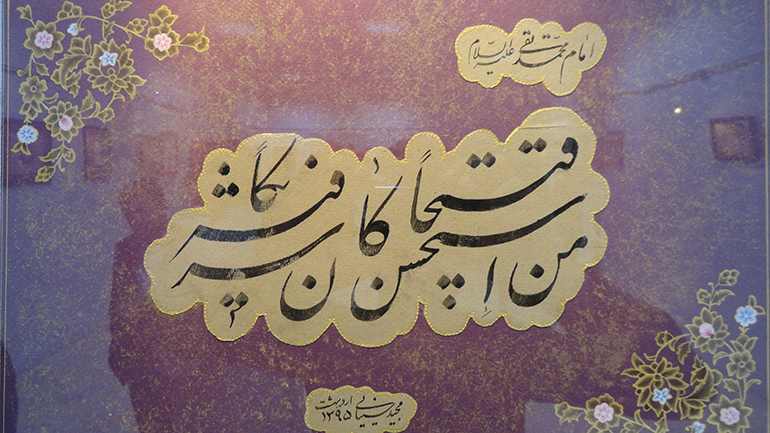 امام محمد تقی علیه السلام
من استحسن قبیحاً کان شریکاً فیه
مجید اردیبهشت ۱۳۹۵